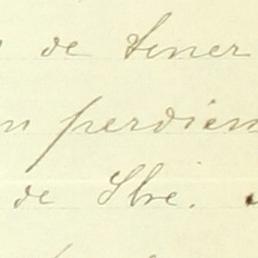 de tener
perdien
de Sbre.